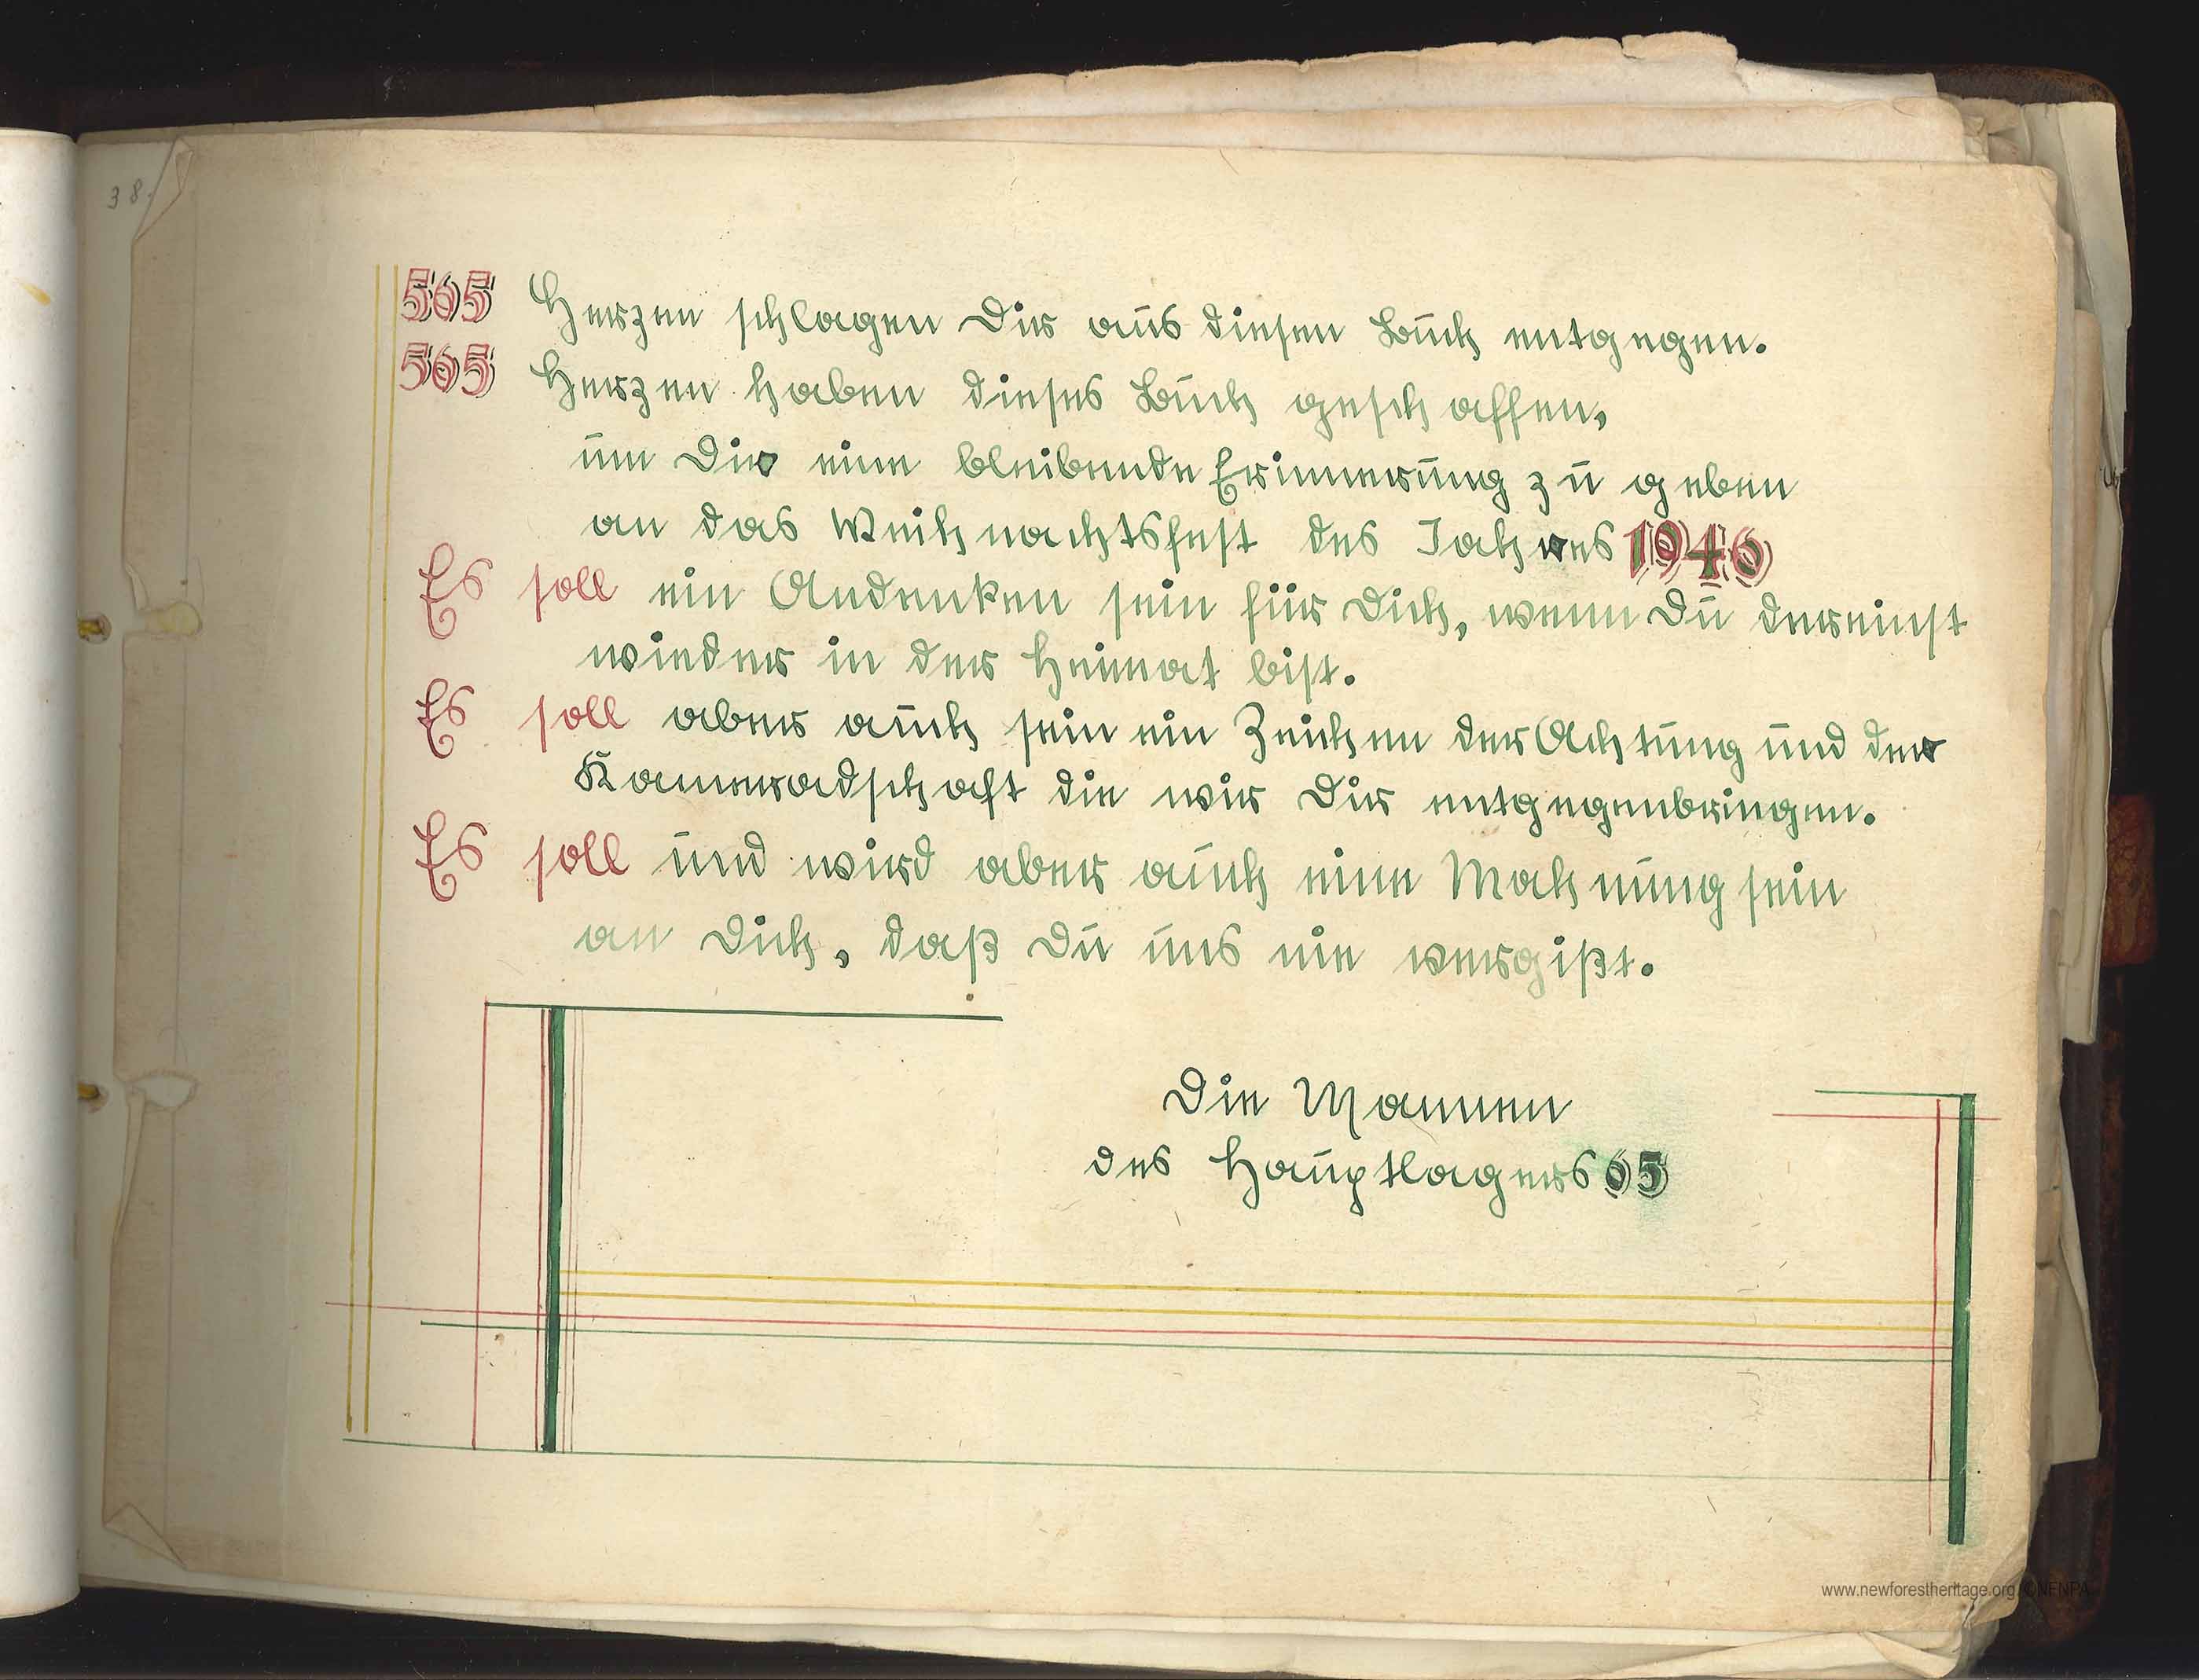 38.
565 Herzen schlagen Dir aus diesen Buch entgegen.
565 Herzen haben dieses Buch geschaffen,
um Dir eine bleibende Erinnerung zu geben
an das Weihnachtsfest des Jahres 1946
Es soll ein Andenken sein für Dich, wenn Du dereinst
wieder in der Heimat bist.
Es soll aber auch sein ein Zeichen der Achtung und der
Kameradschaft die wir Dir entgegenbringen.
Es soll und wird aber auch eine Mahnung sein
an Dich, daß Du uns nie vergißt.
Die Mannen
des Hauptlagers 65
www.newforestheritage.org ©NFNPA